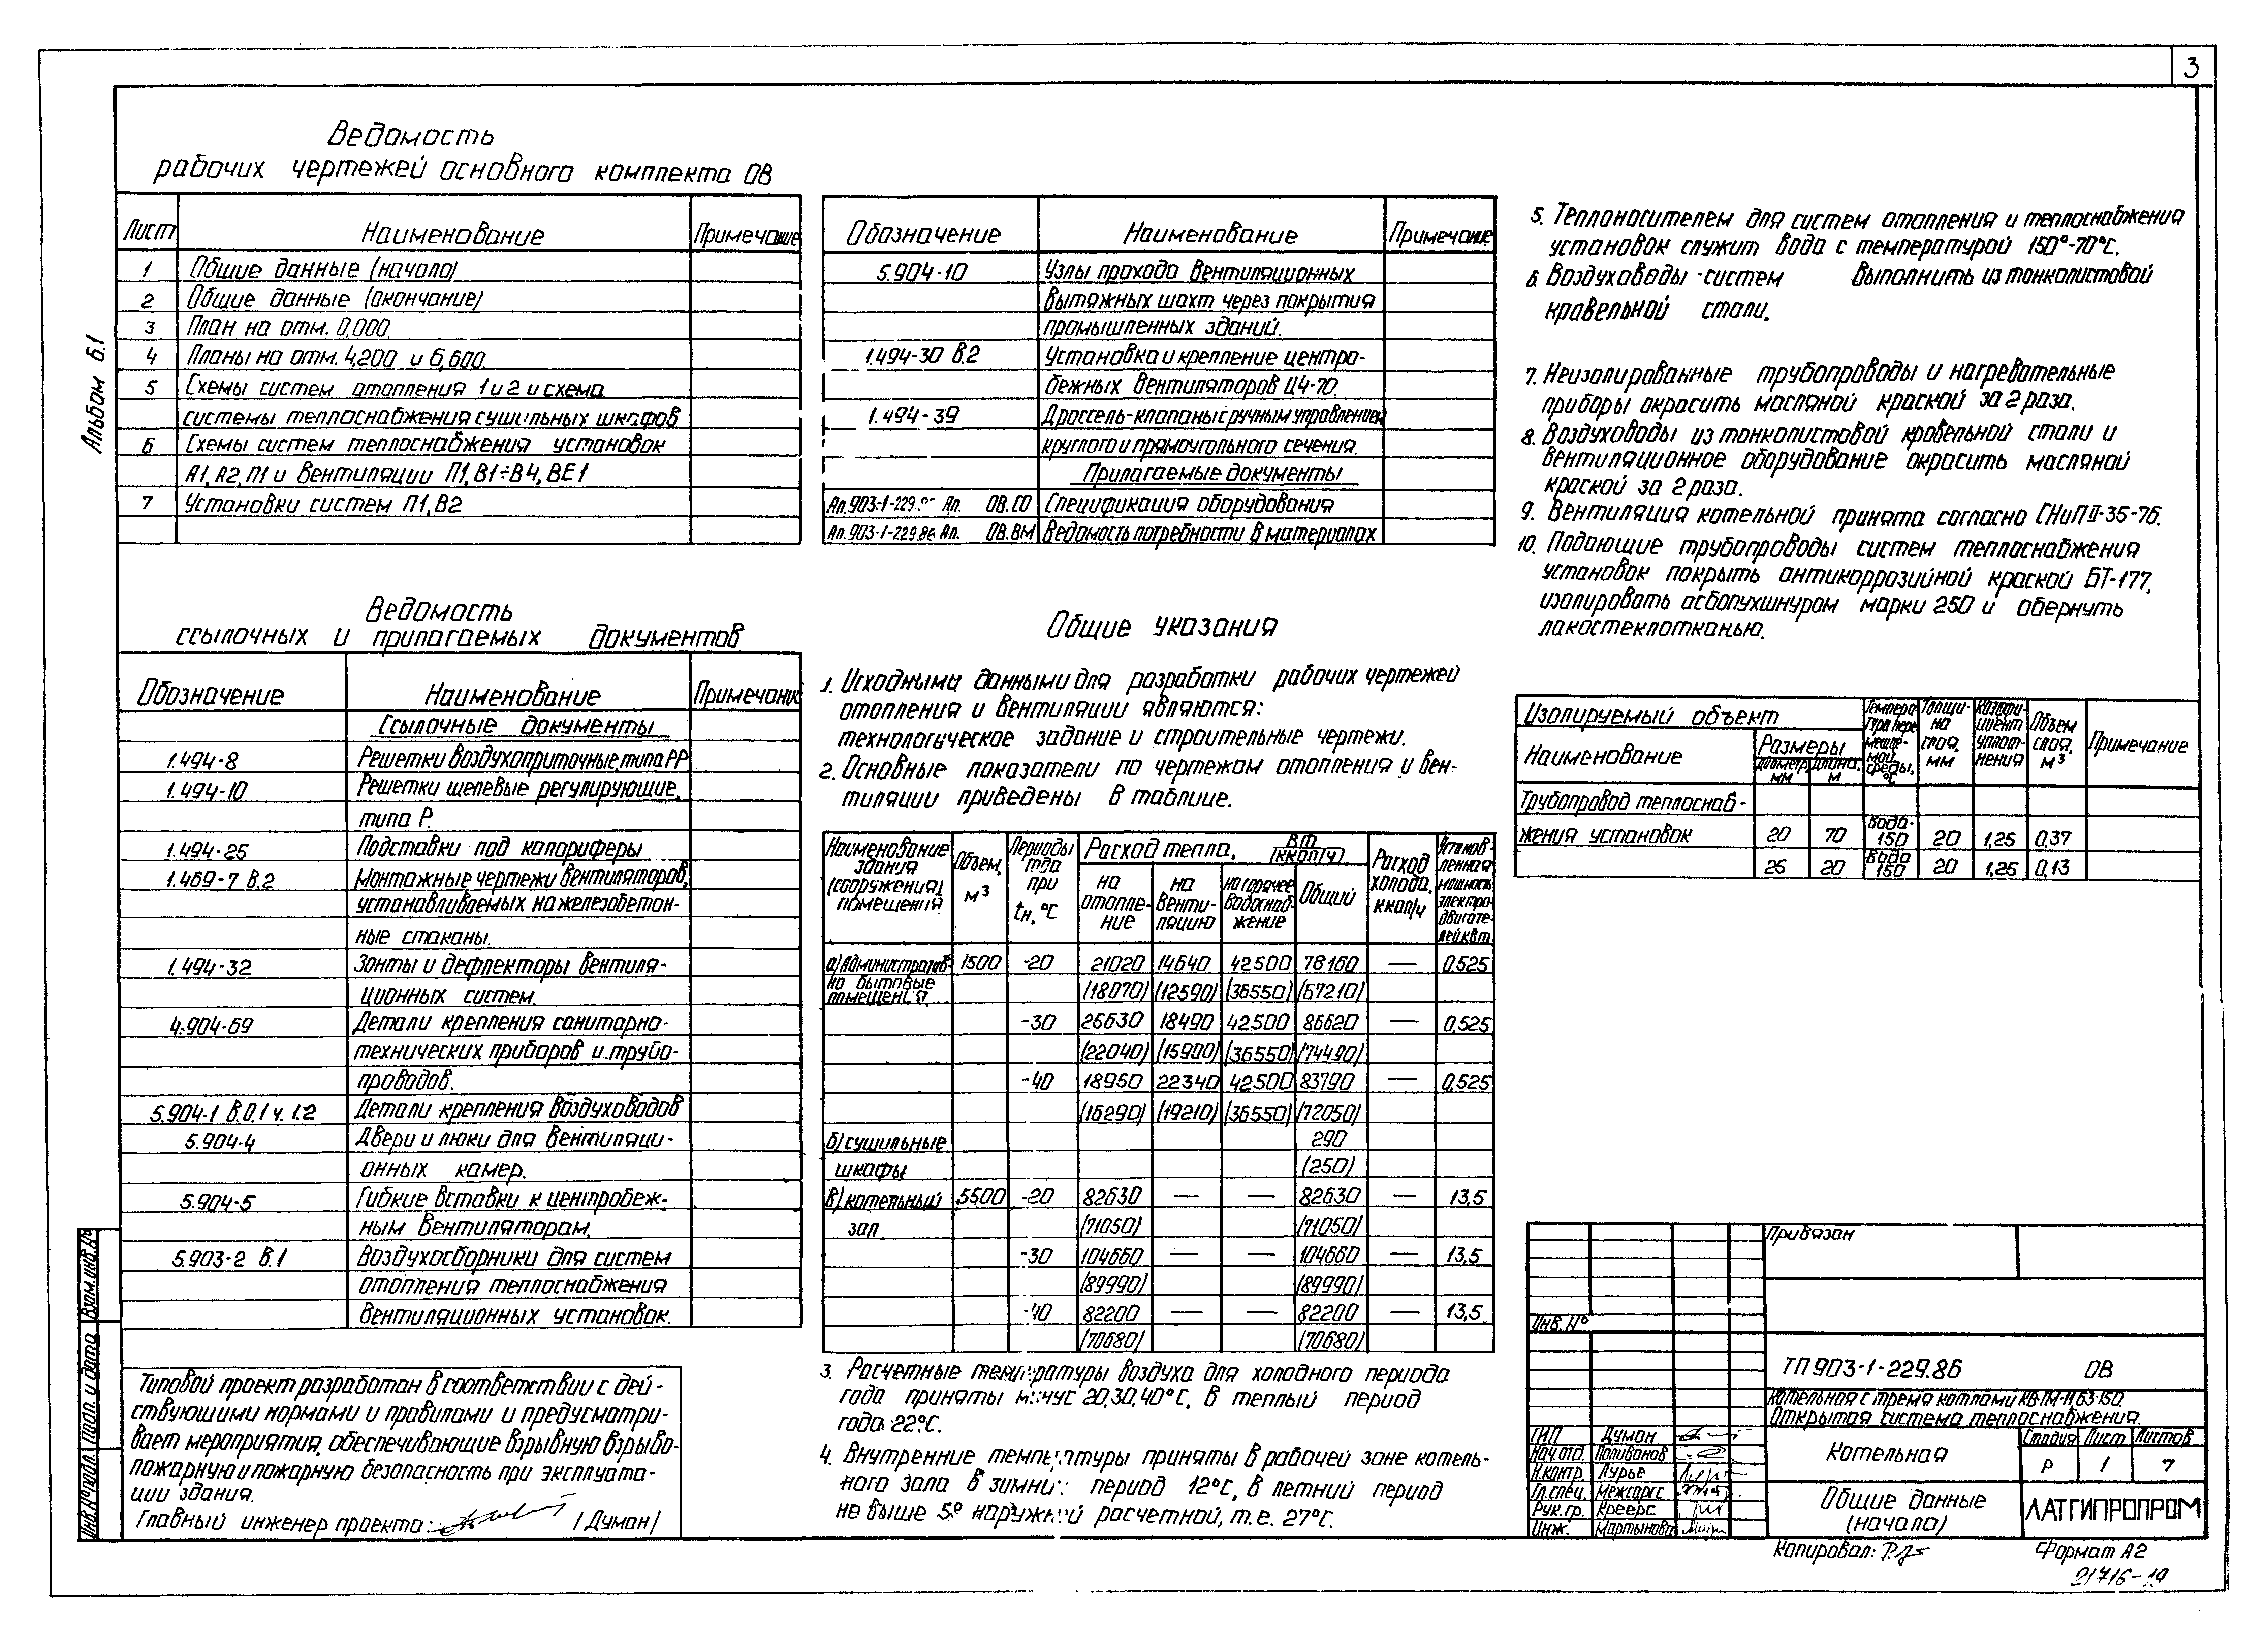 3
Альбом 6.1
Ведомость
рабочих чертежей основного комплекта ОВ
Лист Наименование Примечание
1 Общие данные (начало)
2 Общие данные (окончание)
3 План на отм. 0,000.
4 Планы на отм. 4,200 и 6,600.
5 Схемы систем отопления 1 и 2 и схема
системы теплоснабжения сушильных шкафов
6 Схемы систем теплоснабжения установок
А1, А2, П1 и вентиляции П1, В1÷В4, ВЕ1
7 Установки систем П1, В2
Ведомость
ссылочных и прилагаемых документов
Обозначение Наименование Примечание
Ссылочные документы
1.494-8 Решетки воздухоприточные, типа РР
1.494-10 Решетки щелевые регулирующие,
типа Р.
1.494-25 Подставки под калориферы
1.469-7 В.2 Монтажные чертежи вентиляторов,
устанавливаемых на железобетон-
ные стаканы.
1.494-32 Зонты и дефлекторы вентиля-
ционных систем.
4.904-69 Детали крепления санитарно-
технических приборов и трубо-
проводов.
5.904-1 В.0,1 ч. 1.2 Детали крепления воздуховодов
5.904-4 Двери и люки для вентиляци-
онных камер.
5.904-5 Гибкие вставки к центробеж-
ным вентиляторам.
5.903-2 В.1 Воздухосборники для систем
отопления теплоснабжения
вентиляционных установок.
Типовой проект разработан в соответствии с дей-
ствующими нормами и правилами и предусматри-
вает мероприятия, обеспечивающие взрывную взрыво-
пожарную и пожарную безопасность при эксплуата-
ции здания.
Главный инженер проекта: /Думан/
Инв.№ подл. Подп. и дата Взам.инв.№
Обозначение Наименование Примечание
5.904-10 Узлы прохода вентиляционных
вытяжных шахт через покрытия
промышленных зданий.
1.494-30 В.2 Установка и крепление центро-
бежных вентиляторов Ц4-70.
1.494-39 Дроссель-клапаны с ручным управлением
круглого и прямоугольного сечения.
Прилагаемые документы
Ал.903-1-229. Ал. ОВ.СО Спецификация оборудования
Ал.903-1-229.86 Ал. ОВ.ВМ Ведомость потребности в материалах
Общие указания
1. Исходными данными для разработки рабочих чертежей
отопления и вентиляции являются:
технологическое задание и строительные чертежи.
2. Основные показатели по чертежам отопления и вен-
тиляции приведены в таблице.
Наименование здания (сооружения) помещения Объем, м³ Периоды года при tн, °С Расход тепла, Вт (ккал/ч) Расход холода, ккал/ч Установ-ленная мощность электро-двигате-лей, квт
на отопле-ние на венти-ляцию на горячее водоснаб-жение Общий
а) Административ- 1500 -20 21020 14640 42500 78160 — 0,525
но бытовые помещения (18070) (12590) (36550) (67210)
-30 25630 18490 42500 86620 — 0,525
(22040) (15900) (36550) (74490)
-40 18950 22340 42500 83790 — 0,525
(16290) (19210) (36550) (72050)
б) сушильные 290
шкафы (250)
в) котельный 5500 -20 82630 — — 82630 — 13,5
зал (71050) (71050)
-30 104660 — — 104660 — 13,5
(89990) (89990)
-40 82200 — — 82200 — 13,5
(70680) (70680)
3. Расчетные температуры воздуха для холодного периода
года приняты минус 20, 30, 40°С, в теплый период
года 22°С.
4. Внутренние температуры приняты в рабочей зоне котель-
ного зала в зимний период 12°С, в летний период
не выше 5° наружной расчетной, т.е. 27°С.
5. Теплоносителем для систем отопления и теплоснабжения
установок служит вода с температурой 150°-70°С.
6. Воздуховоды систем выполнить из тонколистовой
кровельной стали.
7. Неизолированные трубопроводы и нагревательные
приборы окрасить масляной краской за 2 раза.
8. Воздуховоды из тонколистовой кровельной стали и
вентиляционное оборудование окрасить масляной
краской за 2 раза.
9. Вентиляция котельной принята согласно СНиП II-35-76.
10. Подающие трубопроводы систем теплоснабжения
установок покрыть антикоррозийной краской БТ-177,
изолировать асбопухшнуром марки 250 и обернуть
лакостеклотканью.
Изолируемый объект Температура перемещае-мой среды, °С Толщи-на слоя, мм Коэффи-циент уплот-нения Объем слоя, м³ Примечание
Наименование Размеры
диаметр, мм длина, м
Трубопровод теплоснаб-
жения установок 20 70 вода-150 20 1,25 0,37
25 20 вода 150 20 1,25 0,13
Привязан
Инв.№
ТП 903-1-229.86 ОВ
Котельная с тремя котлами КВ-ТМ-11,63-150.
Открытая система теплоснабжения.
ГИП Думан
Нач.отд. Поливанов
Н.контр. Лурье
Гл.спец. Межсаргс
Рук.гр. Креерс
Инж. Мартынова
Котельная
Стадия Лист Листов
Р 1 7
Общие данные
(начало)
ЛАТГИПРОПРОМ
Копировал: Формат А2
21716-19